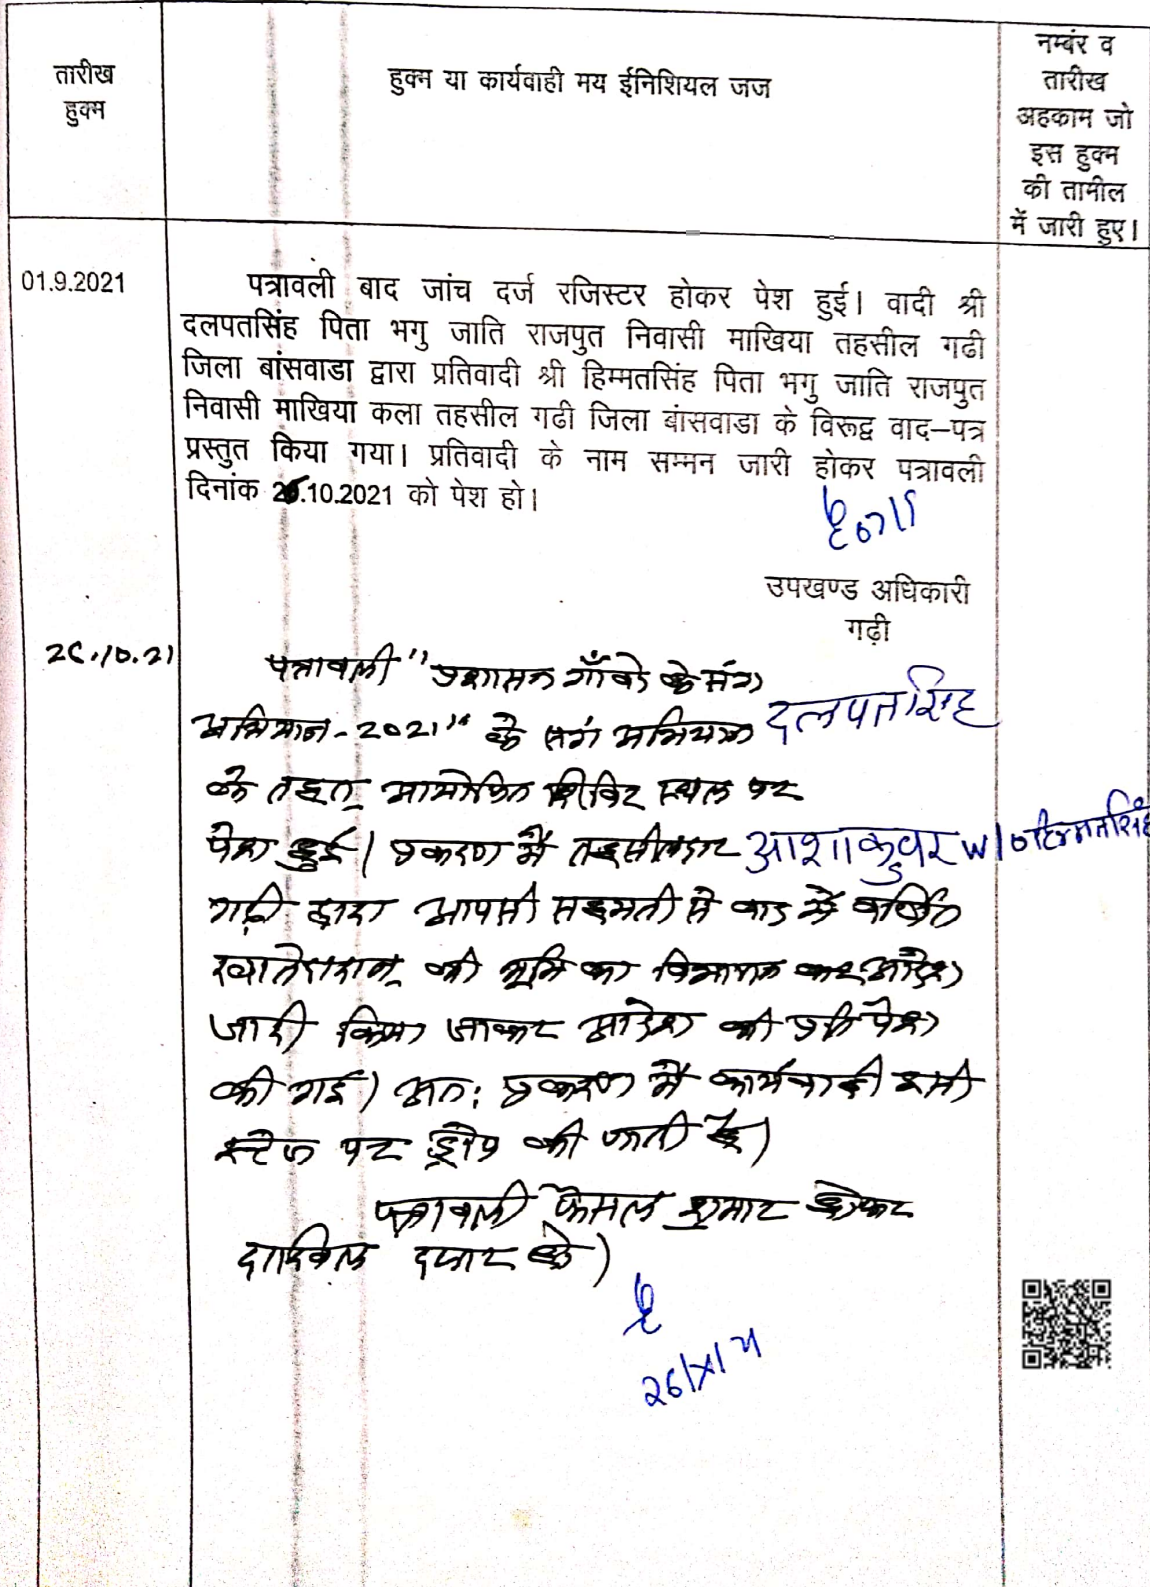 तारीख
हुक्म
हुक्म या कार्यवाही मय ईनिशियल जज
नम्बंर व
तारीख
अहकाम जो
इस हुक्म
की तामील
में जारी हुए।
01.9.2021
पत्रावली बाद जांच दर्ज रजिस्टर होकर पेश हुई। वादी श्री
दलपतसिंह पिता भगु जाति राजपुत निवासी माखिया तहसील गढी
जिला बांसवाडा द्वारा प्रतिवादी श्री हिम्मतसिंह पिता भगु जाति राजपुत
निवासी माखिया कला तहसील गढी जिला बांसवाडा के विरूद्व वाद–पत्र
प्रस्तुत किया गया। प्रतिवादी के नाम सम्मन जारी होकर पत्रावली
दिनांक 26.10.2021 को पेश हो।
उपखण्ड अधिकारी
गढ़ी
26.10.21
पत्रावली "प्रशासन गाँवो के संग
अभियान-2021" के संग अभियान
दलपतसिंह
के तहत् आयोजित शिविर स्थल पर
पेश हुई। प्रकरण में तहसीलदार
आशाकुवर w/o हिम्मतसिंह
गढ़ी द्वारा आपसी सहमती से वाद में वर्णित
खातेदारान् की भूमि का विभाजन कर आदेश
जारी किया जाकर आदेश की प्रति पेश
की गई। अत: प्रकरण में कार्यवाही इसी
स्टेज पर ड्रोप की जाती है।
पत्रावली फैसल शुमार होकर
दाखिल दफ्तर हो।
26/X/21